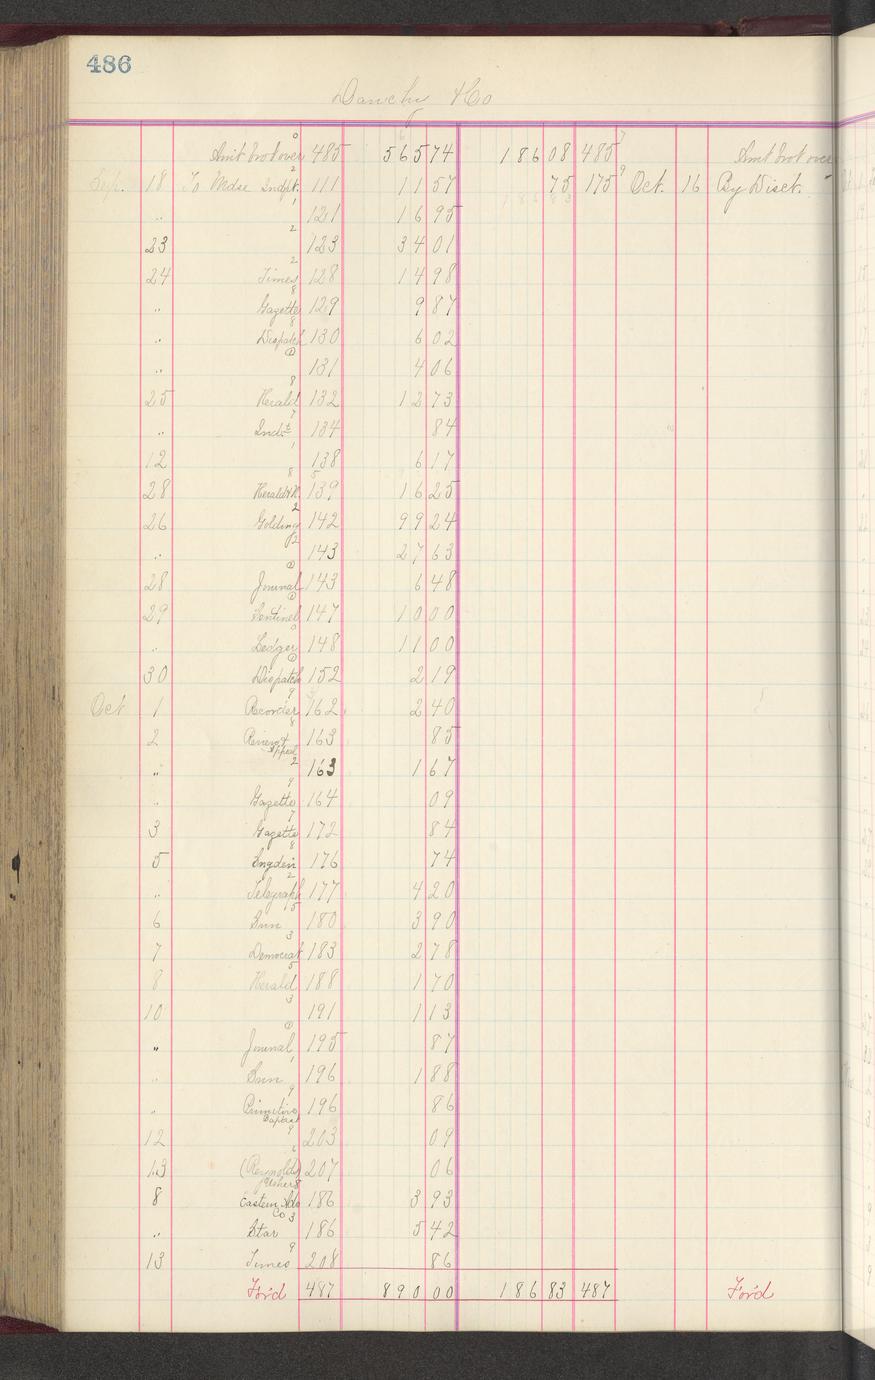 486
Danchy & Co
Amt brot over 485 565 74 186 08 485 Amt brot over
Sep. 18 To Mdse Indpt. 111 11 57 75 175 Oct. 16 By Disct. "
" 121 16 95
23 123 34 01
24 Times 128 14 98
" Gazette 129 9 87
" Dispatch 130 6 02
" 131 4 06
25 Herald 132 12 73
" Indt 134 84
12 138 6 17
28 Herald & N. 139 16 25
26 Golding 142 99 24
" 143 27 63
28 Journal 143 6 48
29 Sentinel 147 10 00
" Ledger 148 11 00
30 Dispatch 152 2 19
Oct 1 Recorder 162 2 40
2 Review & Appeal 163 85
" 163 1 67
" Gazette 164 09
3 Gazette 172 84
5 176 74
" Telegraph 177 4 20
6 Sun 180 3 90
7 Democrat 183 2 78
8 Herald 188 1 70
10 191 1 13
" Journal 195 87
" Sun 196 1 88
" Primitive Baptist 196 86
12 203 09
13 (Reynolds) 207 06
8 Eastern Ads Co 186 3 93
" Star 186 5 42
13 Times 208 86
For'd 487 890 00 186 83 487 For'd